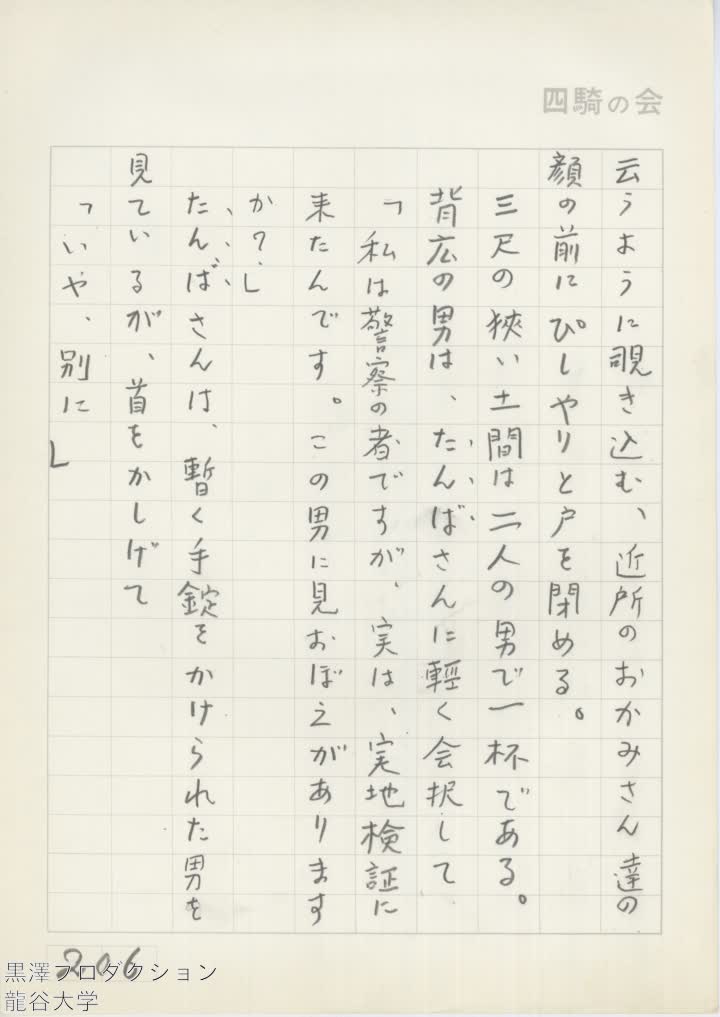 四騎の会
云うように覗き込む、近所のおかみさん達の
顔の前にぴしやりと戸を閉める。
三尺の狭い土間は二人の男で一杯である。
背広の男は、たんばさんに輕く会択して
「私は警察の者ですが、実は、実地検証に
来たんです。この男に見おぼえがあります
か？」
たんばさんは、暫く手錠をかけられた男を
見ているが、首をかしげて
「いや、別に」
206
黒澤プロダクション
龍谷大学